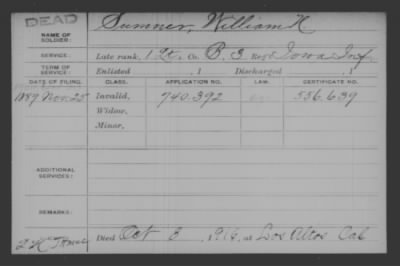 DEAD
NAME OF SOLDIER: Sumner, William H
SERVICE: Late rank, 1 Lt, Co. B, 3 Reg't Iowa Inf
TERM OF SERVICE: Enlisted , 1 Discharged , 1
DATE OF FILING. CLASS. APPLICATION NO. LAW. CERTIFICATE NO.
1889 Nov. 25 Invalid, 740.392 556.639
Widow,
Minor,
ADDITIONAL SERVICES:
REMARKS:
Died Oct 8, 1916, at Los Altos Cal